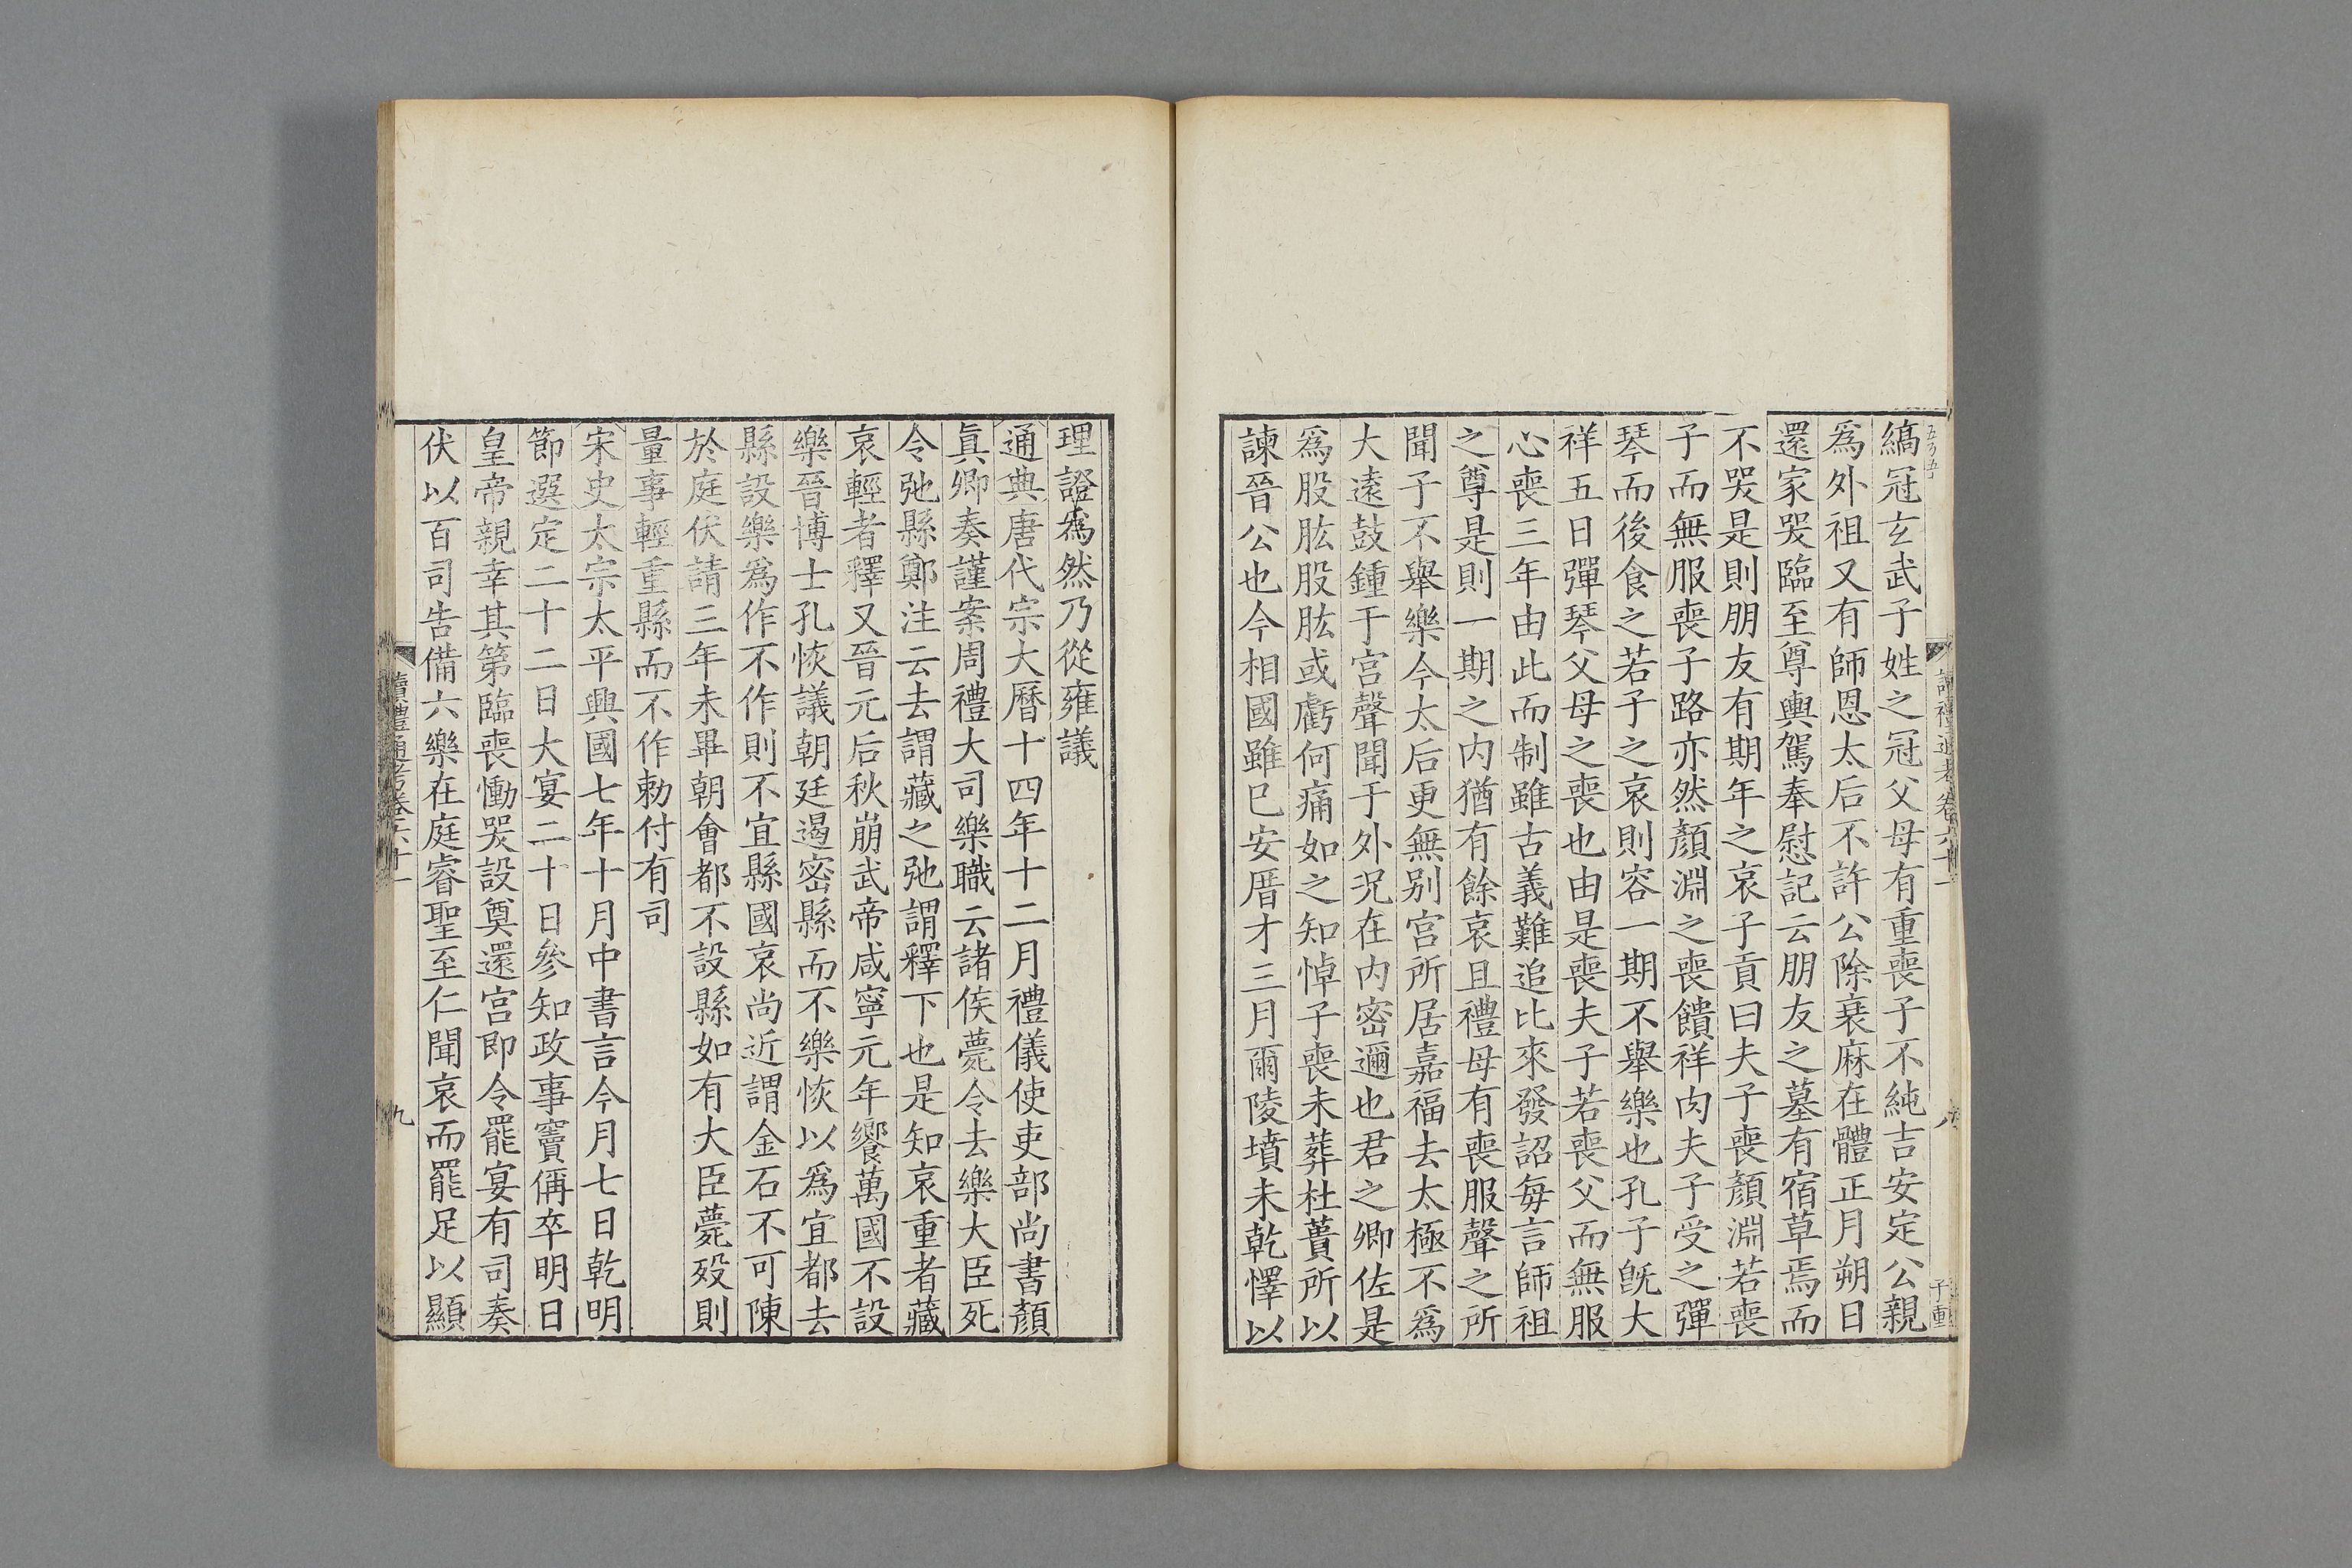 縞冠玄武子姓之冠父母有重喪子不純吉安定公親
爲外祖又有師恩太后不許公除衰麻在體正月朔日
還家哭臨至尊輿駕奉慰記云朋友之墓有宿草焉而
不哭是則朋友有期年之哀子貢曰夫子喪顏淵若喪
子而無服喪子路亦然顏淵之喪饋祥肉夫子受之彈
琴而後食之若子之哀則容一期不舉樂也孔子既大
祥五日彈琴父母之喪也由是喪夫子若喪父而無服
心喪三年由此而制雖古義難追比來發詔每言師祖
之尊是則一期之内猶有餘哀且禮母有喪服聲之所
聞子不舉樂今太后更無别宫所居嘉福去太極不爲
大遠鼓鍾于宫聲聞于外況在内密邇也君之卿佐是
爲股肱股肱或虧何痛如之知悼子喪未葬杜蕢所以
諫晉公也今相國雖已安厝才三月爾陵墳未乾懌以
理證爲然乃從雍議
通典唐代宗大曆十四年十二月禮儀使吏部尚書顏
眞卿奏謹案周禮大司樂職云諸侯薨令去樂大臣死
令弛縣鄭注云去謂藏之弛謂釋下也是知哀重者藏
哀輕者釋又晉元后秋崩武帝咸寧元年饗萬國不設
樂晉博士孔恢議朝廷遏密縣而不樂恢以爲宜都去
縣設樂爲作不作則不宜縣國哀尚近謂金石不可陳
於庭伏請三年未畢朝會都不設縣如有大臣薨歿則
量事輕重縣而不作勅付有司
宋史太宗太平興國七年十月中書言今月七日乾明
節選定二十二日大宴二十日參知政事竇偁卒明日
皇帝親幸其第臨喪慟哭設奠還宫即令罷宴有司奏
伏以百司告備六樂在庭睿聖至仁聞哀而罷足以顯
讀禮通考卷六十一
九